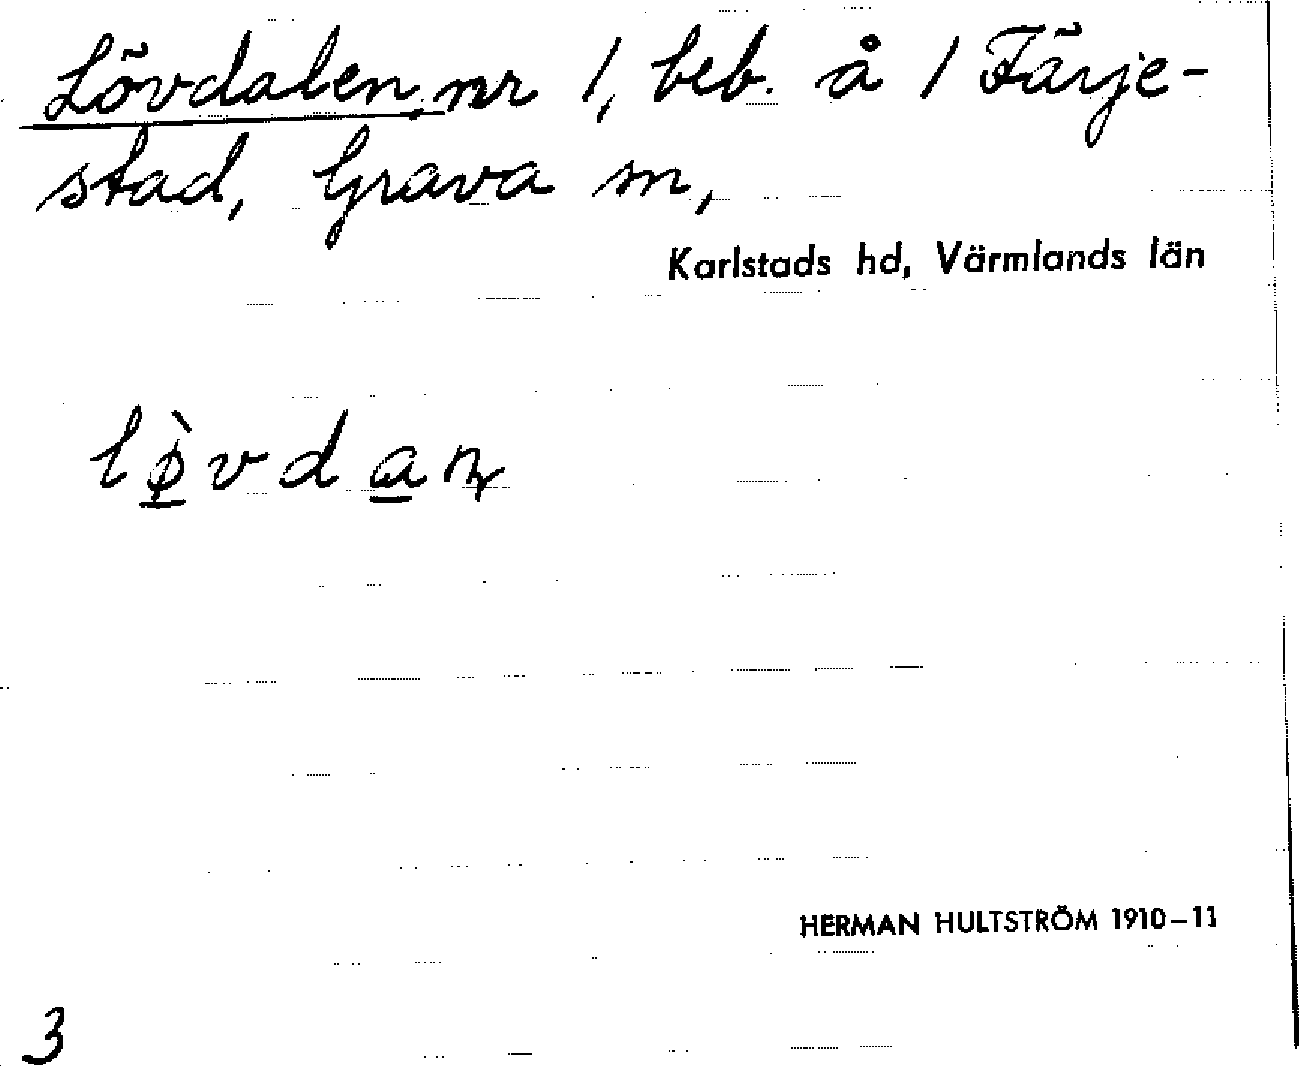 Lövdalen, nr 1, beb. å 1 Färje-
stad, Grava sn,
Karlstads hd, Värmlands län
lø̀vdan
HERMAN HULTSTRÖM 1910–11
3